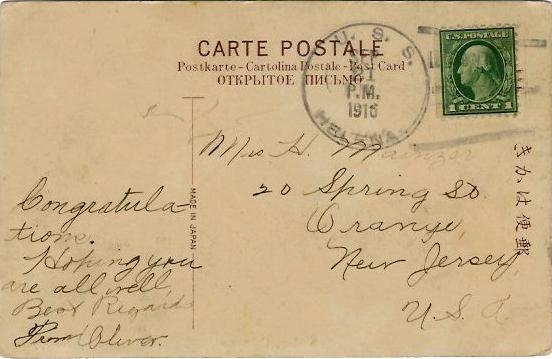 CARTE POSTALE
Postkarte - Cartolina Postale - Post Card
ОТКРЫТОЕ ПИСЬМО
U. S. S.
P.M.
1916
HELENA.
U.S. POSTAGE
1 CENT 1
Mrs H. Mainzer
20 Spring St.
Orange,
New Jersey,
U.S.A.
郵便はかき
MADE IN JAPAN
Congratula-
tions.
Hoping you
are all well,
Best Regards
From Oliver.